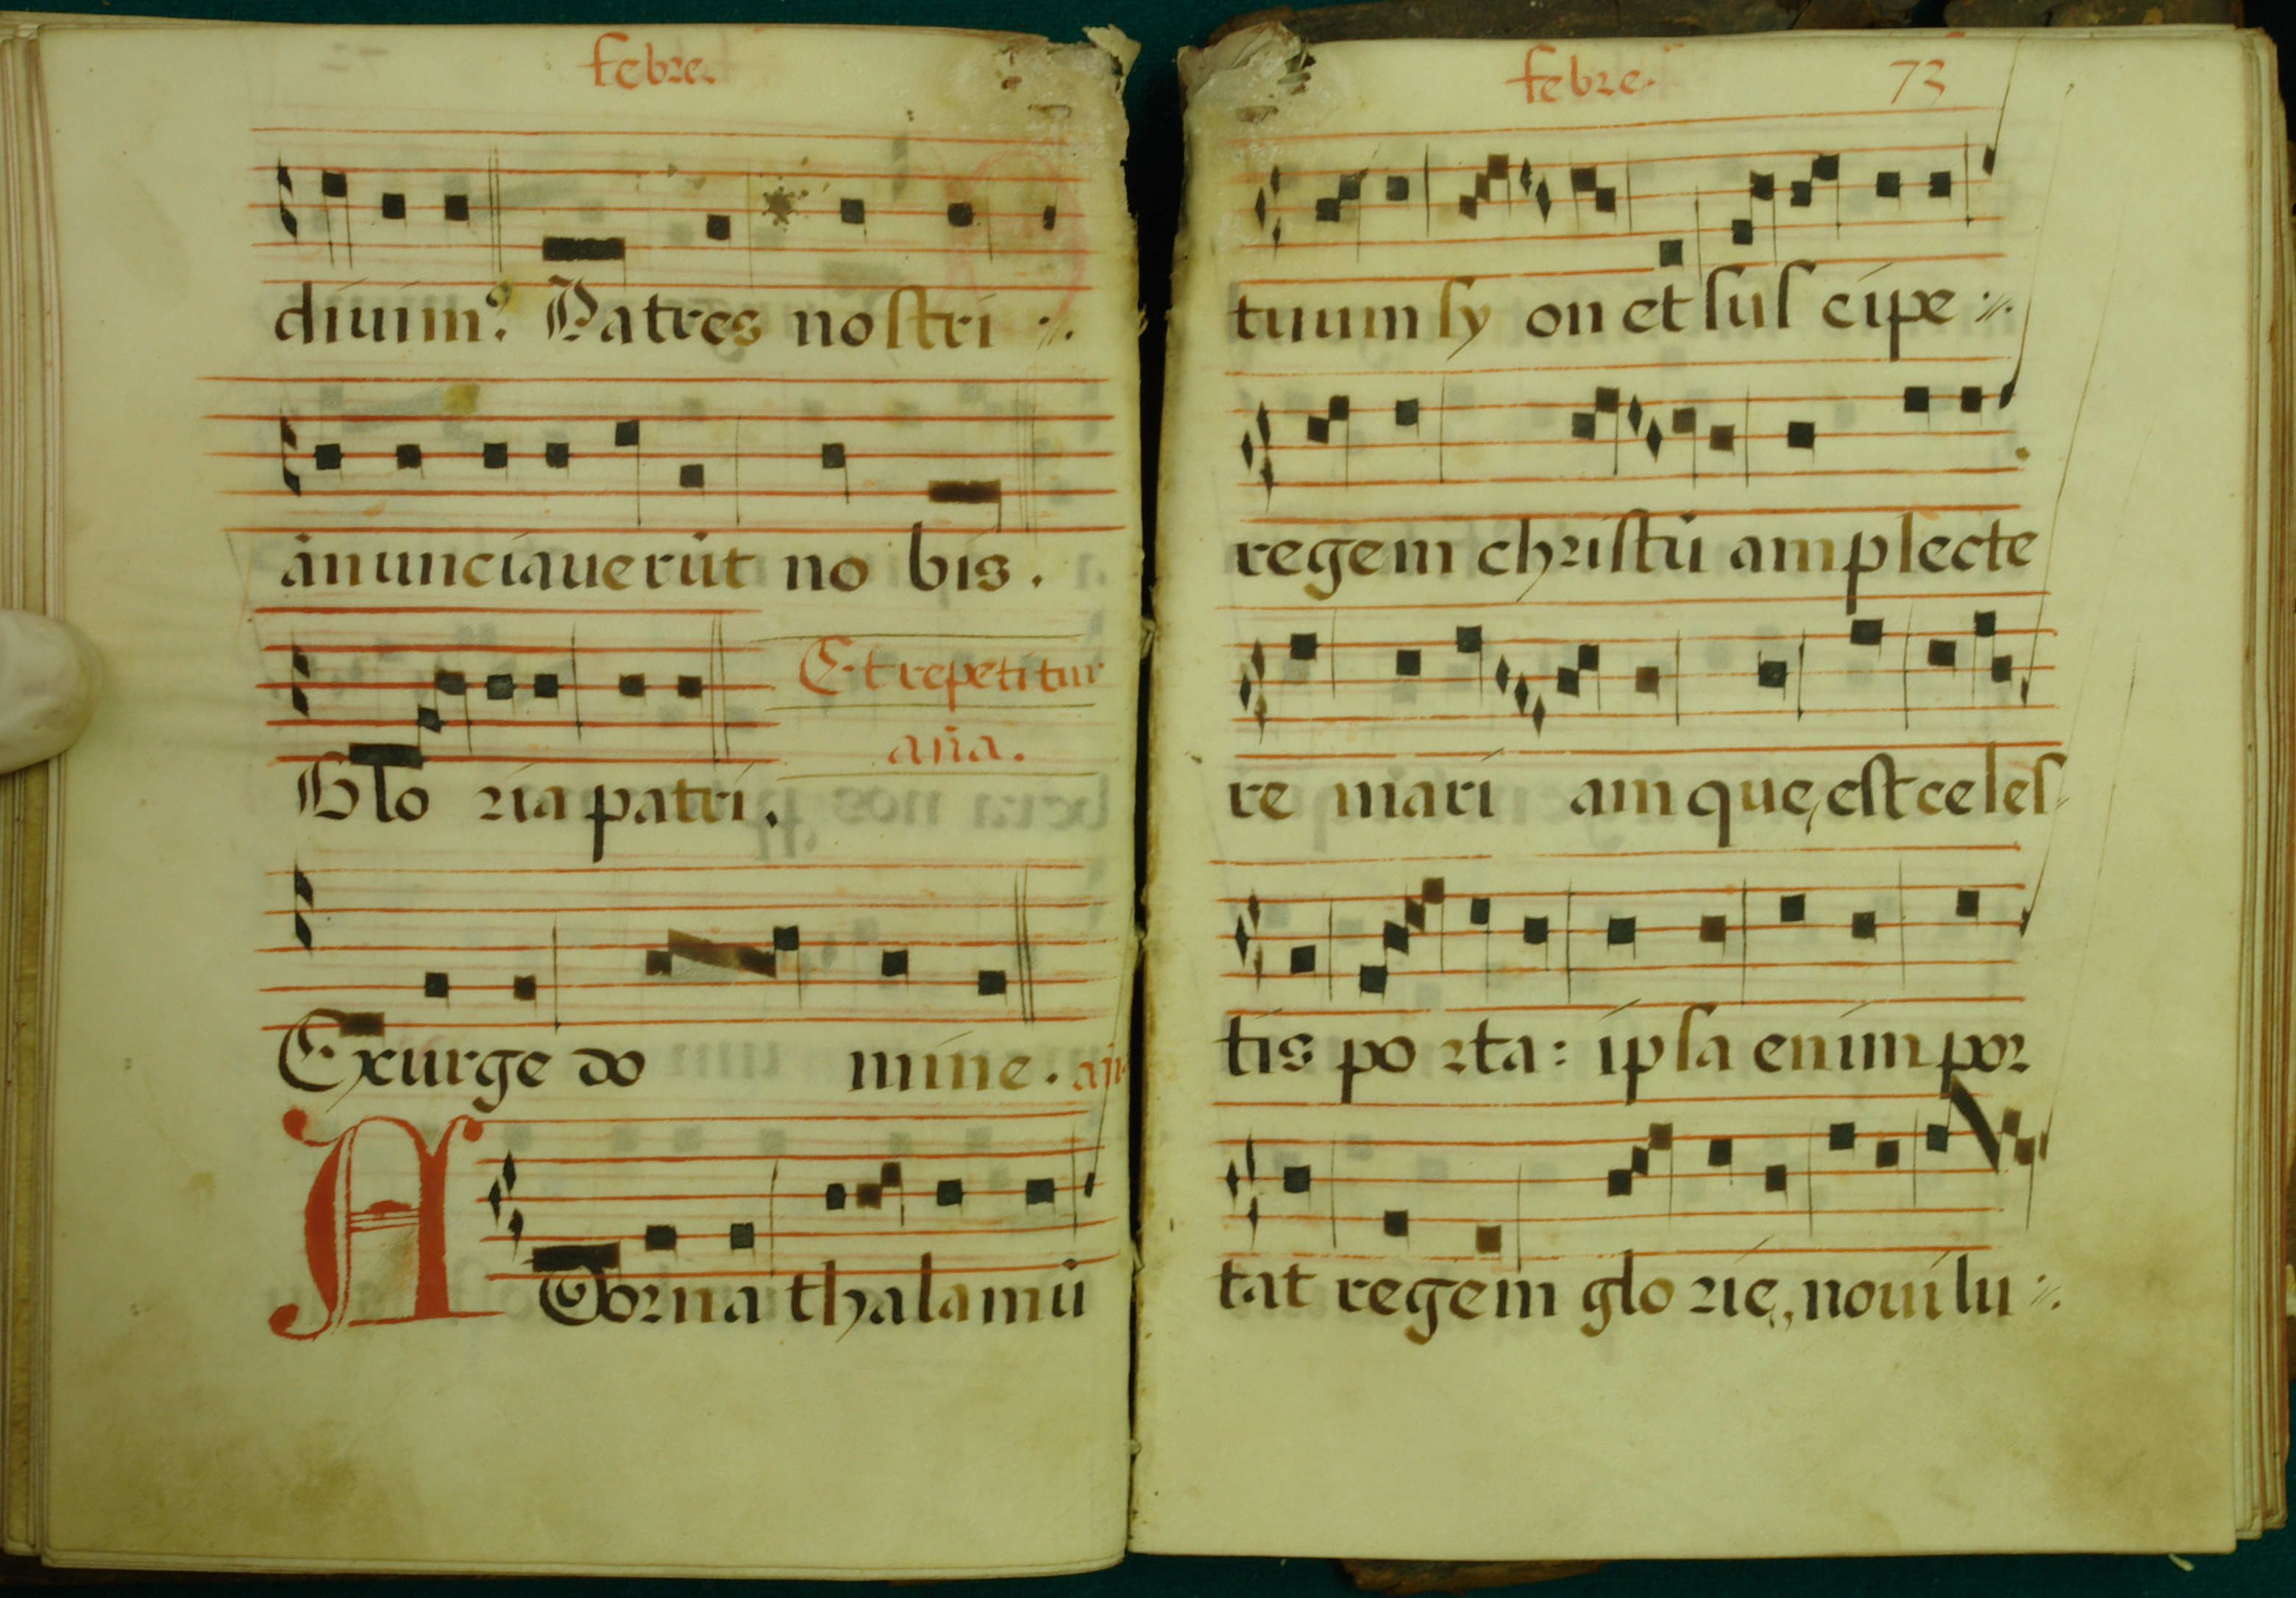 febre.
diuim? Patres nostri ://.
ānunciauerūt no bis.
Et repetitur
aña.
Glo ria patri.
Exurge do mine. añ
Adorna thalamū
febre. 73
tuum sy on et sus cipe ://.
regem christū amplecte
re mari am que est celes
tis po rta: ipsa enim por
tat regem glo rie, noui lu ://.